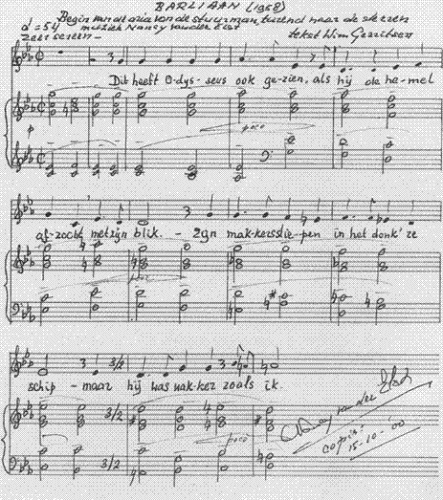 BARLIAAN (1968)
Begin van de aria van de stuurman, turend naar de sterren
♩=54 muziek Nancy van der Elst tekst Wim Gerritsen
zeer sereen -
Dit heeft O-dys-seus ook ge-zien, als hij de he-mel
p
poco
af-zocht met zijn blik. - Zijn mak-kers slie-pen in het donk're
schip - maar hij was wak-ker zoals ik.
3 3/2
poco
Nancy van der Elst
copie
15-10-00